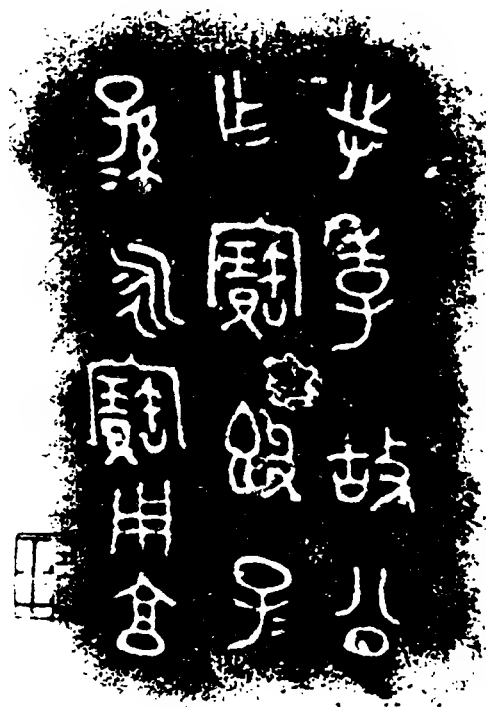 寺季故公
乍寶𣪘子=
孫=永寶用享